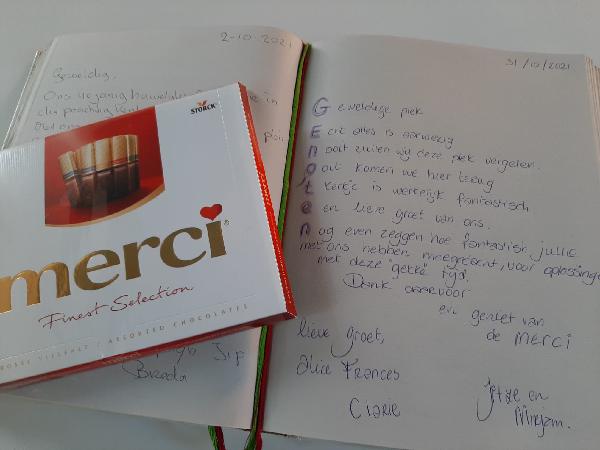 2-10-2021
Geweldig,
Ons 40jarig huwelijks in
die prachtig
STORCK
merci
Finest Selection
ASSORTED CHOCOLATES
Jip
Breda
31/10/2021
Geweldige plek
Echt alles is aanwezig
Nooit zullen wij deze plek vergeten.
Ooit komen we hier terug
't kerkje is werkelijk fantastisch
een lieve groet van ons.
Nog even zeggen hoe fantastisch jullie
met ons hebben meegedacht, voor oplossingen
met deze "gekke" tijd.
Dank daarvoor
en geniet van
de merci
lieve groet,
Alice Frances
Clarie
Jitze en
Mirjam.